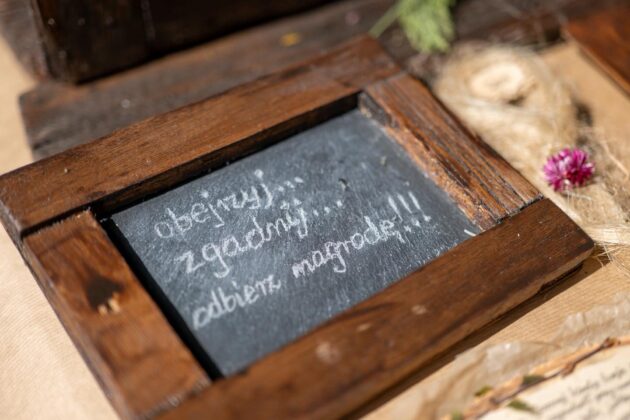 obejrzyj...
zgadnij...
odbierz nagrodę!!!